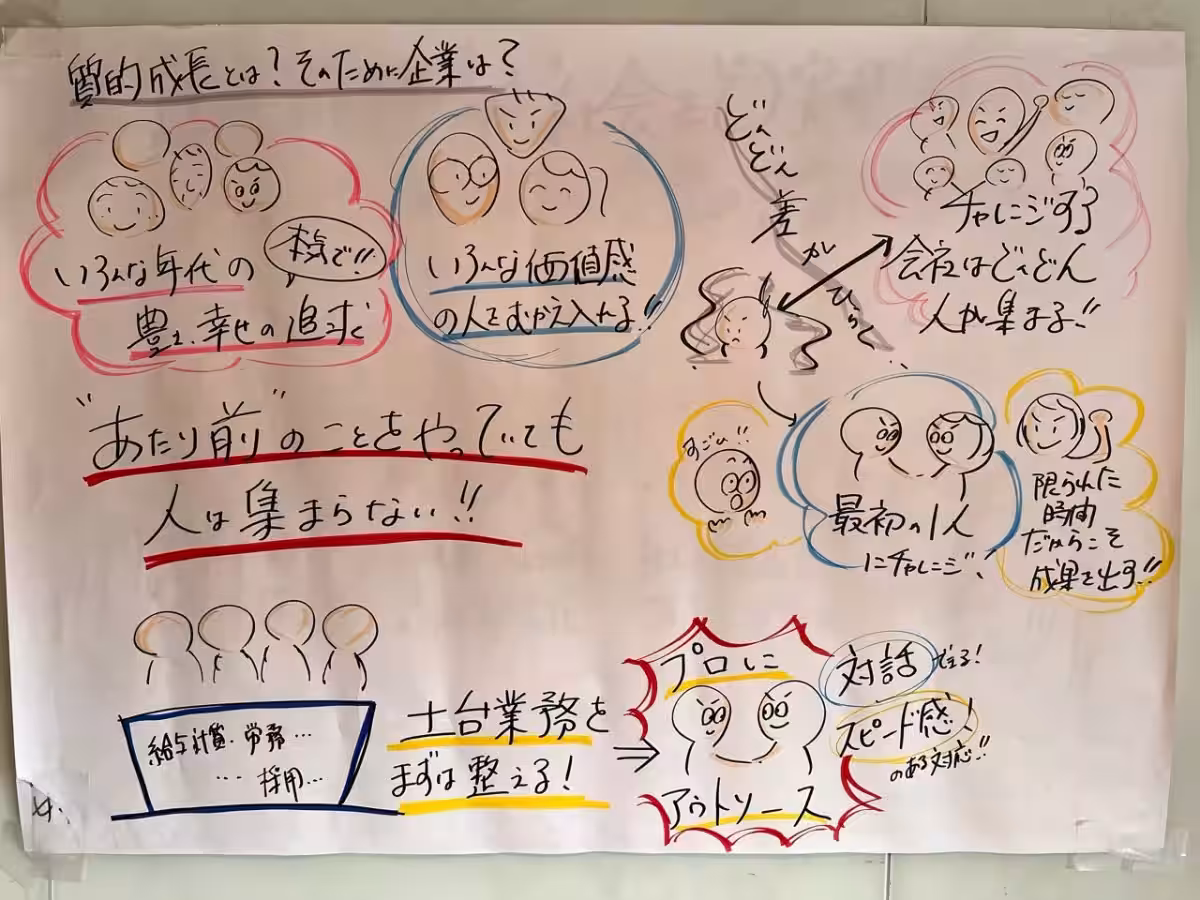 質的成長とは？そのために企業は？
いろんな年代の
本気で!!
豊さ、幸せの追求
いろんな価値感
の人をむかえ入れる!!
どんどん
差
が
ひらく…
チャレンジする
会社はどんどん
人が集まる!!
"あたり前"のことをやっていても
人は集まらない!!
すごい!!
最初の1人
にチャレンジ!
限られた
時間
だからこそ
成果を出す!!
給与計算・労務…
…採用…
土台業務を
まずは整える!
⇒
プロに
アウトソース
対話できる!
スピード感!
のある対応!!